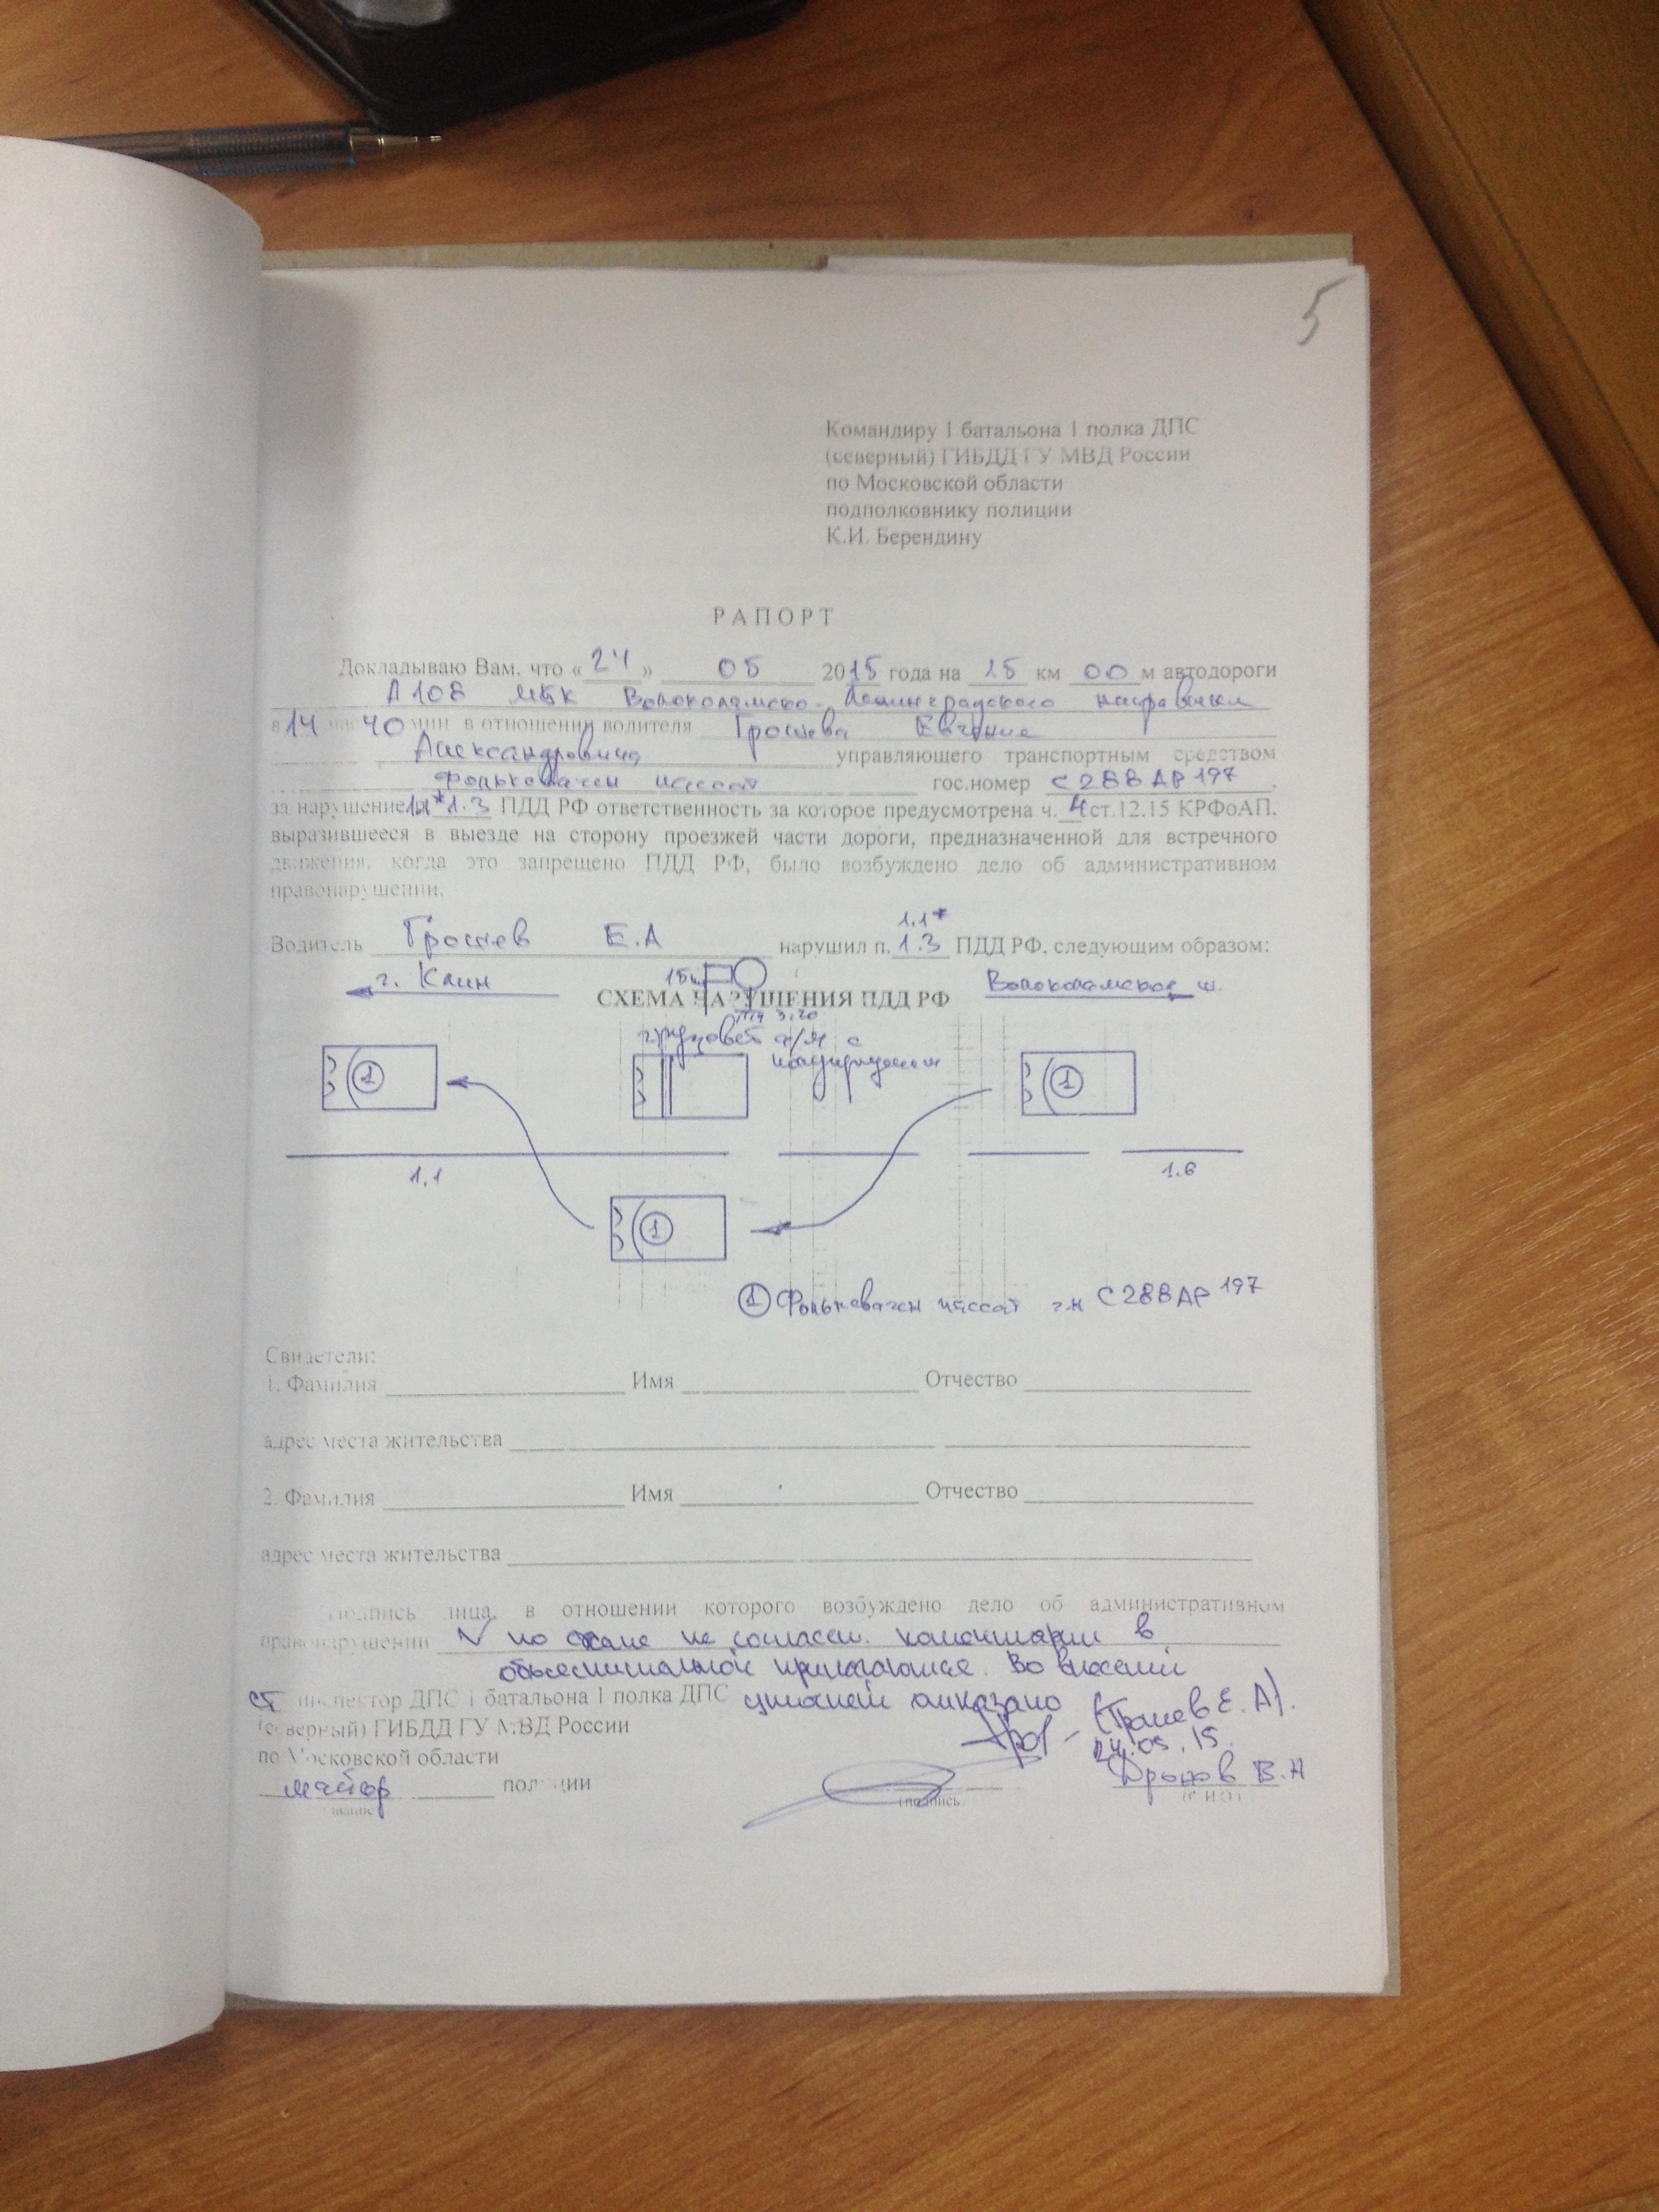 5
Командиру 1 батальона 1 полка ДПС
(северный) ГИБДД ГУ МВД России
по Московской области
подполковнику полиции
К.И. Берендину
РАПОРТ
Докладываю Вам, что «24» 05 2015 года на 25 км 00 м автодороги
А108 МБК Волоколамско-Ленинградского
в 14 час 40 мин. в отношении водителя
Александровича управляющего транспортным средством
Фольксваген пассат гос.номер С288АР197
за нарушение п. 1.1* 1.3 ПДД РФ ответственность за которое предусмотрена ч. 4 ст.12.15 КРФоАП,
выразившееся в выезде на сторону проезжей части дороги, предназначенной для встречного
движения, когда это запрещено ПДД РФ, было возбуждено дело об административном
правонарушении.
1.1*
Водитель Е.А нарушил п. 1.3 ПДД РФ, следующим образом:
г. Клин Волоколамское ш.
СХЕМА НАРУШЕНИЯ ПДД РФ
3.20
грузовой а/м с
1
1
1.1
1.6
1
1 Фольксваген пассат г.н С288АР197
Свидетели:
1. Фамилия Имя Отчество
адрес места жительства
2. Фамилия Имя Отчество
адрес места жительства
Подпись лица, в отношении которого возбуждено дело об административном
правонарушении по схеме не согласен. коментарии в
объеснительной
ст инспектор ДПС 1 батальона 1 полка ДПС отказано
(северный) ГИБДД ГУ МВД России
по Московской области
24.05.15.
майор полиции В.Н
звание (подпись) (Ф.И.О)